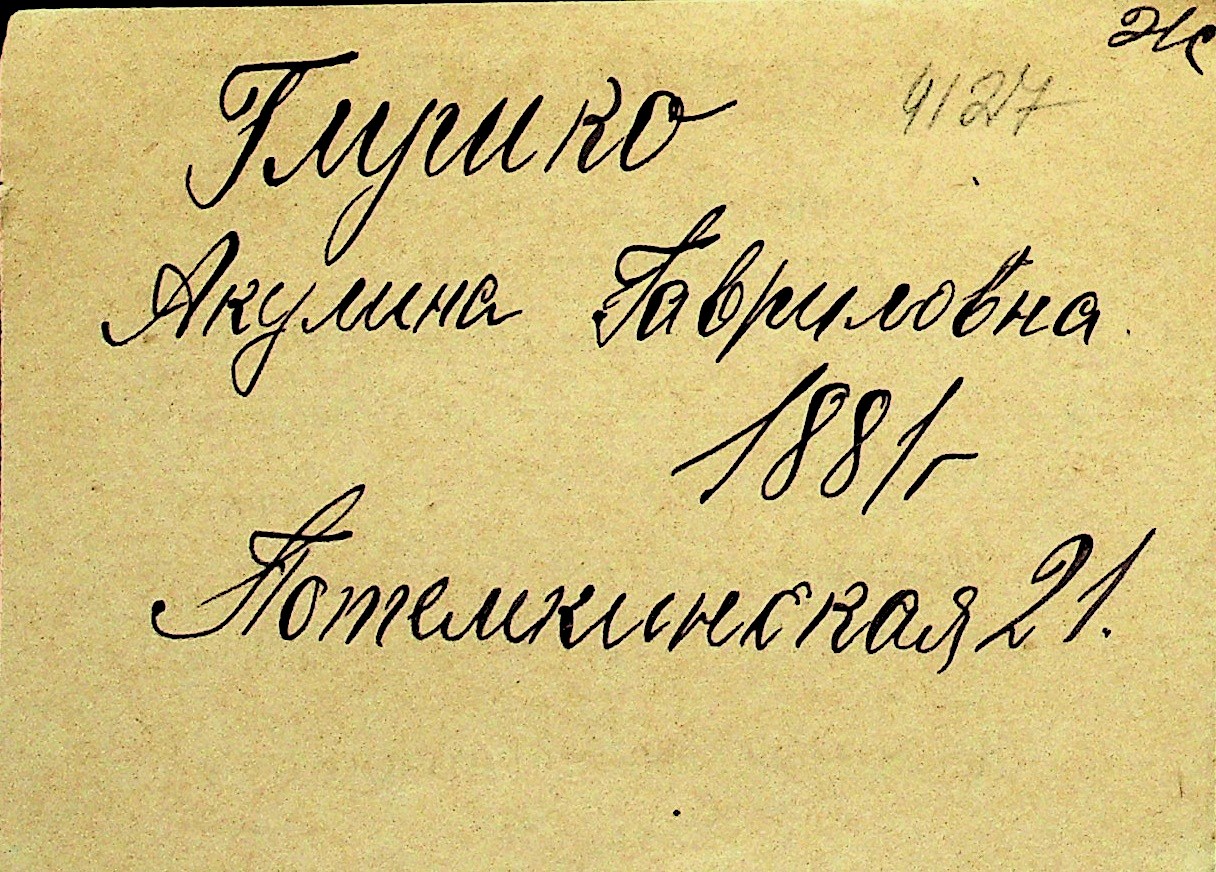 Ж
4127
Глушко
Акулина Гавриловна
1881г
Потемкинская 21.